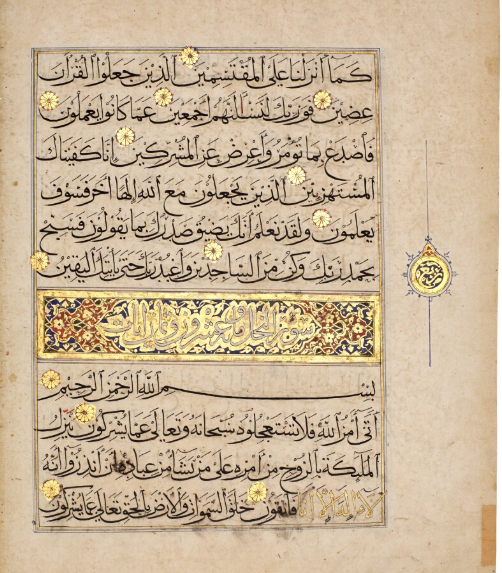 كما أنزلنا على المقتسمين الذين جعلوا القرآن
عضين فوربك لنسألنهم أجمعين عما كانوا يعملون
فاصدع بما تؤمر وأعرض عن المشركين إنا كفيناك
المستهزئين الذين يجعلون مع الله إلها آخر فسوف
يعلمون ولقد نعلم أنك يضيق صدرك بما يقولون فسبح
بحمد ربك وكن من الساجدين واعبد ربك حتى يأتيك اليقين
سورة النحل مائة وعشرون وثمان آيات
بسم الله الرحمن الرحيم
أتى أمر الله فلا تستعجلوه سبحانه وتعالى عما يشركون ينزل
الملئكة بالروح من أمره على من يشاء من عباده أن أنذروا أنه
لا إله إلا أنا فاتقون خلق السموات والأرض بالحق تعالى عما يشركون